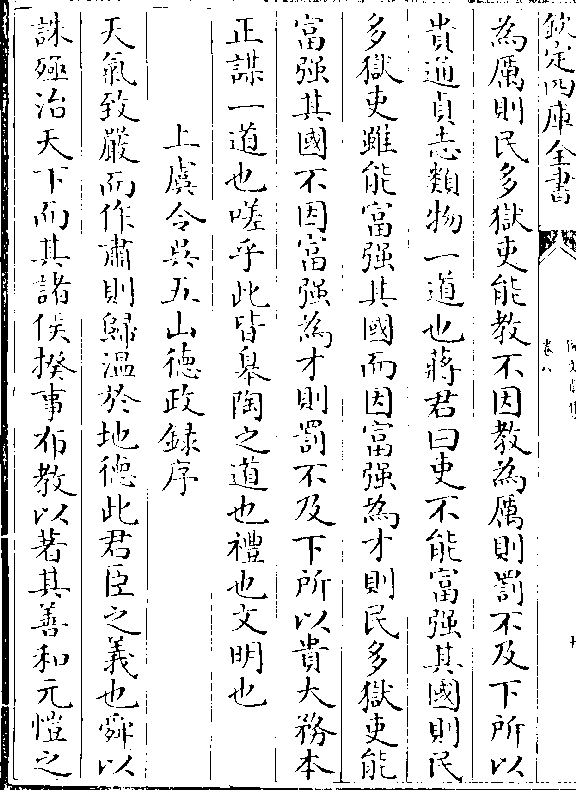 欽定四庫全書
卷八
為厲則民多獄吏能教不因教為厲則罰不及下所以
貴通貞志類物一道也蔣君曰吏不能富强其國則民
多獄吏雖能富强其國而因富强為才則民多獄吏能
富强其國不因富强為才則罰不及下所以貴大務本
正謀一道也嗟乎此皆臯陶之道也禮也文明也
上虞令吳五山德政録序
天氣致嚴而作肅則歸温於地德此君臣之義也舜以
誅殛治天下而其諸侯揆事布教以著其善和元愷之